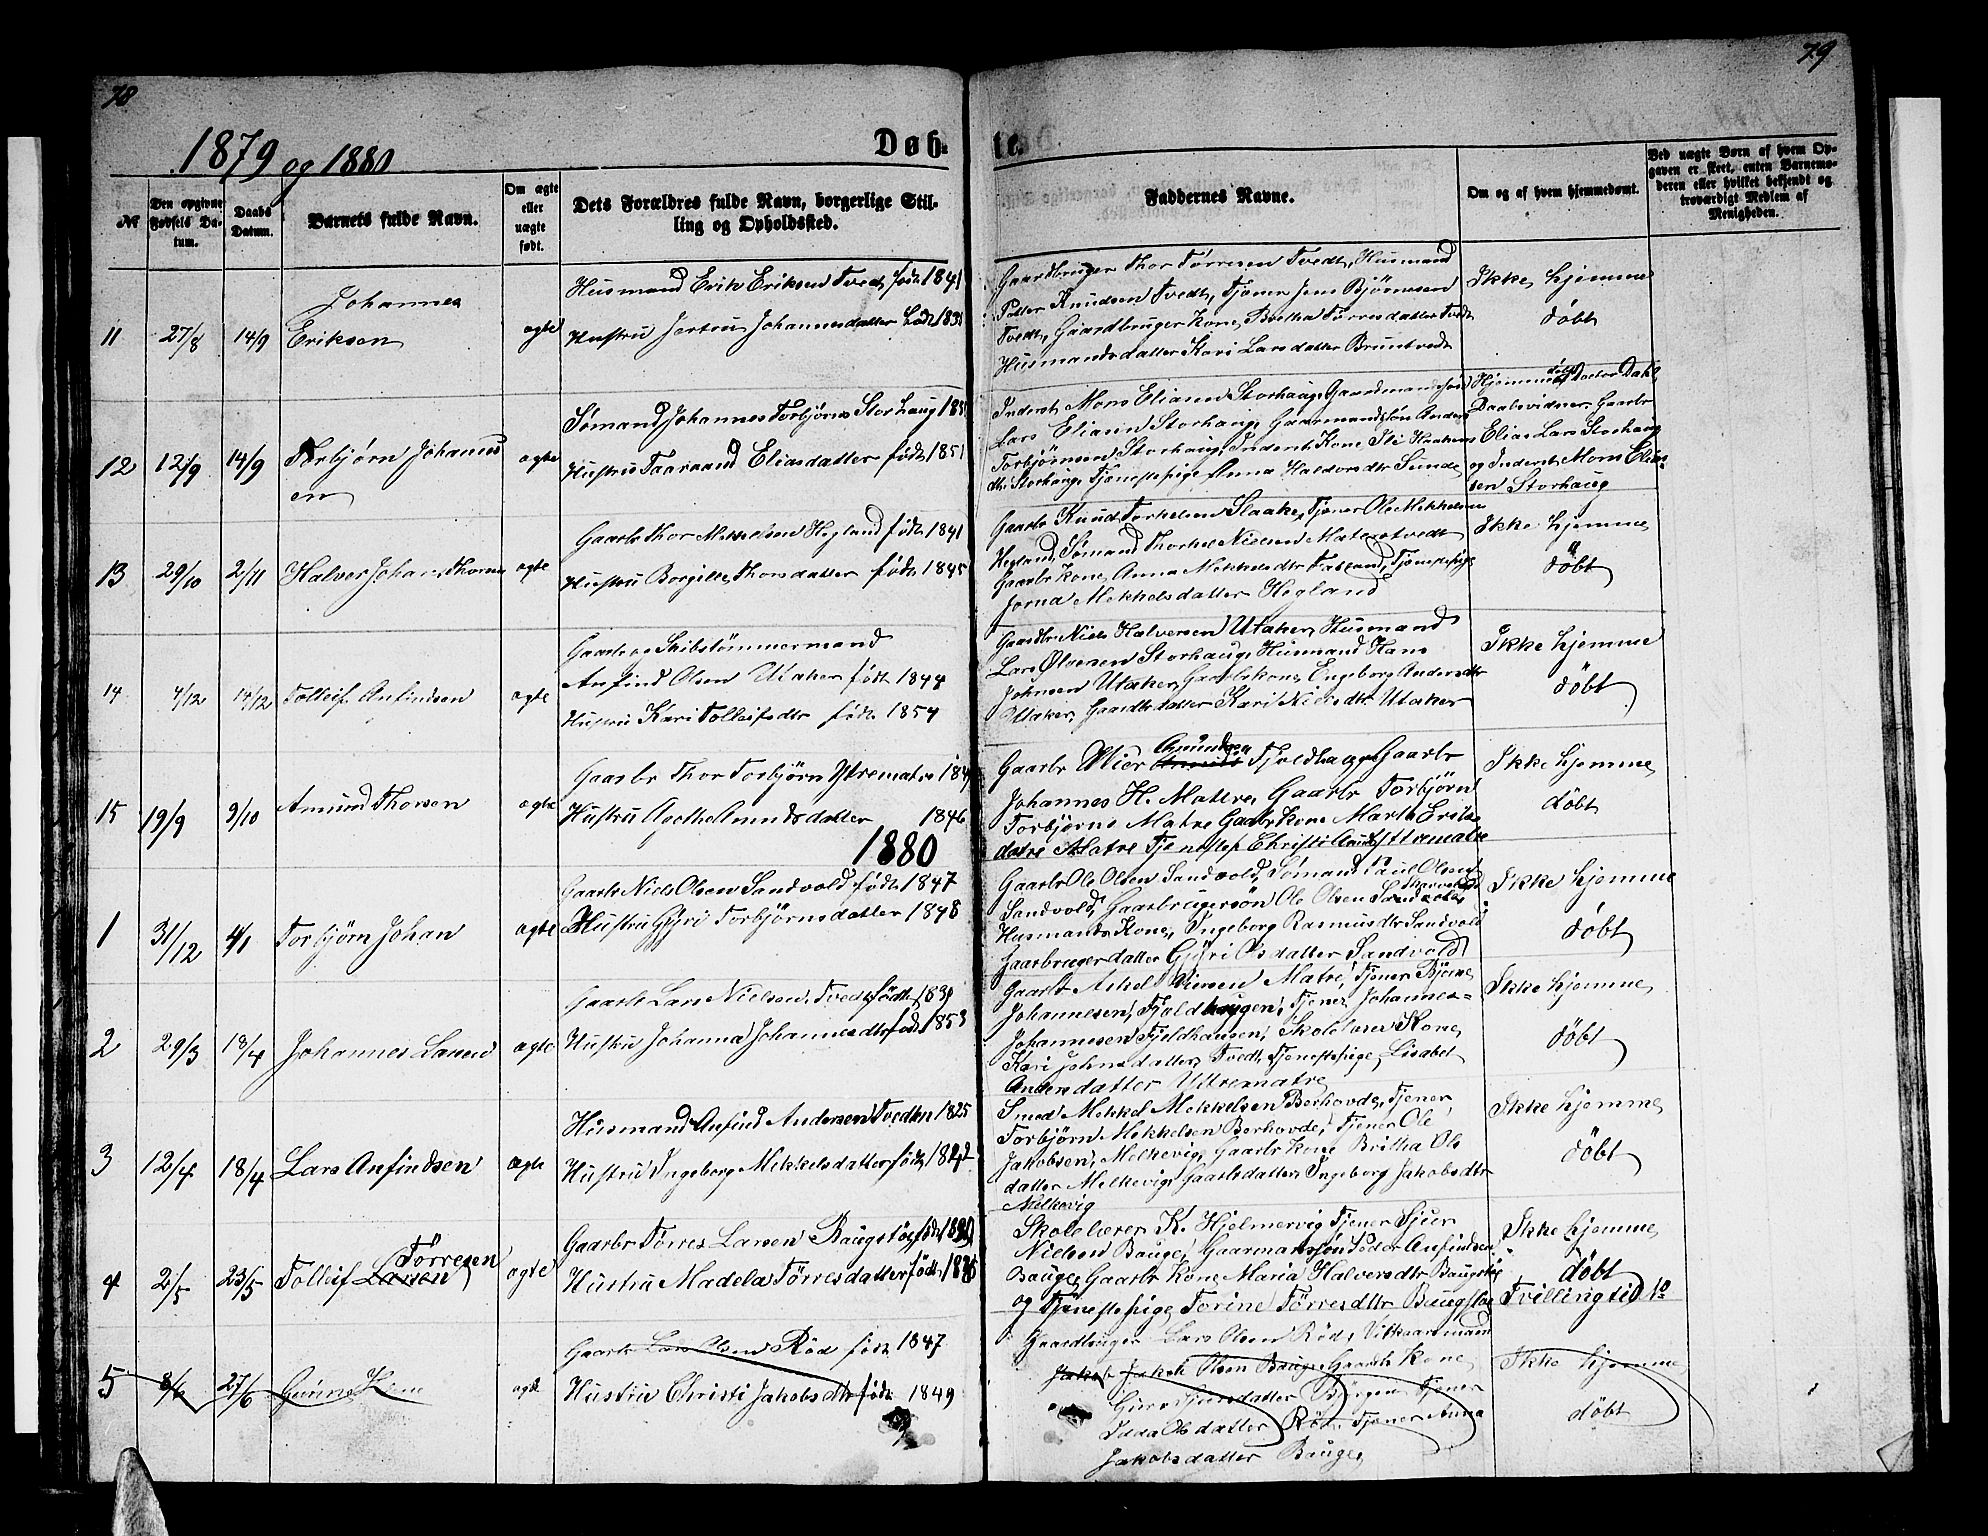 78
79
1879 og 1880
Døb-
te.
№
Den opgivne Fødsels Datum.
Daabs Datum.
Barnets fulde Navn.
Om ægte eller uægte født.
Dets Forældres fulde Navn, borgerlige Stilling og Opholdssted.
Faddernes Navne.
Om og af hvem hjemmedøbt.
Ved uægte Børn af hvem Opgaven er skeet, enten Barnemoderen eller hvilket bekjendt og troværdigt Medlem af Menigheden.
11 27/8 14/9 Johannes
Eriksen
ægte
Husmand Erik Eriksen Tvedt født 1841
Hustru Jertru Johannesdatter født
Gaardbruger Thor Tørresen Tvedt, Husmand
Peder Knudsen Tvedt, Tjener Jens Bjørnesen
Tvedt, Gaardbruger Kone Britha Tørresdatter Tvedt
Husmandsdatter Kari Larsdatter Bruntvedt
Ikke hjemme
døbt
12 12/9 14/9 Torbjørn Johannes
en
ægte
Sømand Johannes Torbjørns Storhaug
Hustru Taaraand Eliasdatter født 1851
Inderst Mons Eliasen Storhaug Gaardmandssøn
Lars Eliasen Storhaug, Gaarmandssøn Anders
Torbjørnsen Storhaug, Inderst Kone Haakens
dtr Storhaug Tjenestepige Anna Haldorsdtr Sunde
Hjemmedøbt Doctor Dahl
Daabsvidner Gaarbr
Elias Lars Storhaug
og Inderst Mons Elia-
sen Storhaug
13 29/10 2/11 Halver Johan Thorsen
ægte
Gaarbr Thor Mekkelsen Hegland født 1841
Hustru Borgilde Thorsdatter født 1845
Gaarbr Knud Torkelsen Slaake, Tjener Ole Mekkelsen
Hegland, Sømand Thorkel Nielsen Matretvedt
Gaarbr Kone Anna Mekkelsdtr Tjenestepige
Jorna Mekkelsdatter Hegland
Ikke hjemme
døbt
14 4/12 14/12 Tolleif Anfindsen
ægte
Gaarbr og Skibstømmermand
Anfind Olsen Utaker født 1844
Hustru Kari Tolleifsdtr født 1854
Gaardbr Niels Halversen Utaker, Husmand
Lars Olversen Storhaug, Husmand Hans
Johnsen Utaker, Gaarbrkone Engeborg Andersdtr
Utaker, Gaardbrdatter Kari Nielsdtr Utaker
Ikke hjemme
døbt
15 19/9 9/10 Amund Thorsen
ægte
Gaarbr Thor Torbjørn Ytrematre
Hustru Agathe Amundsdatter 1846
Gaarbr Vier Amundsen Fjeldhaugen Gaarbr
Johannes H. Matre, Gaarbr Torbjørn
Torbjørns Matre Gaarbr Kone Martha Eriks
datre Matre Tjenestep Christi Ytrematre
Ikke hjemme
døbt
1880
1 31/12 4/1 Torbjørn Johan
ægte
Gaarbr Niels Olsen Sandvold født 1847
Hustru Gjøri Torbjørnsdatter 1848
Gaarbr Ole Olsen Sandvold, Sømand Paul Olsen
Sandvold, Gaarbrugersøn Ole Olsen Sandvold
Husmands Kone, Ingeborg Rasmusdtr Sandvold
Gaarbrugerdatter Gjøri Olsdatter Sandvold
Ikke hjemme
døbt
2 29/3 18/4 Johannes Larsen
ægte
Gaarbr Lars Nielsen Tvedt født
Hustru Johanna Johannesdtr født 1853
Gaarbr Askel Viersen Matre, Tjener Bjørne
Johannesen, Fjeldhaugen, Tjener Johannes
Johannesen Fjeldhaugen, Skolelærer Kone
Kari Johnsdatter Tvedt, Tjenestepige Lisabet
Andersdatter Ytrematre
Ikke hjemme
døbt
3 12/4 18/4 Lars Anfindsen
ægte
Husmand Anfind Andersen Tvedten 1825
Hustru Ingeborg Mekkelsdatter født 1842
Smed Mekkel Mekkelsen Berhovde, Tjener
Torbjørn Mekkelsen Berhovde, Tjener Ole
Jakobsen, Melkevig, Gaarbr Kone Britha Ols
datter Melkevig, Gaarbrdatter Ingeborg Jakobsdtr
Melkevig
Ikke hjemme
døbt
4 2/5 23/5 Tørresen
Tolleif Larsen
ægte
Gaarbr Tørres Larsen Baugstø født
Hustru Madela Tørresdatter født
Skolelærer K. Hjelmervig Tjener Sjur
Nielsen Bauge, Gaarmansøn Peder Anfindsen
Bauge, Gaarbr Kone Maria Halversdtr Baugstø
og Tjenestepige Torine Tørresdtr Baugstø
Ikke hjemme
døbt
Tvilling
5 8/6 27/6
ægte
Gaarbr Lars Olsen Rød født 1847
Hustru Christi Jakobsdtr født 1849
Gaardbruger Lars Olsen Røds Vilkaarsmand
Jakob Olsen Bauge, Gaarbr Kone
Guro Sjursdatter Tjener
Olsdatter Rød, Tjener Anna
Jakobsdatter Bauge,
Ikke hjemme
døbt